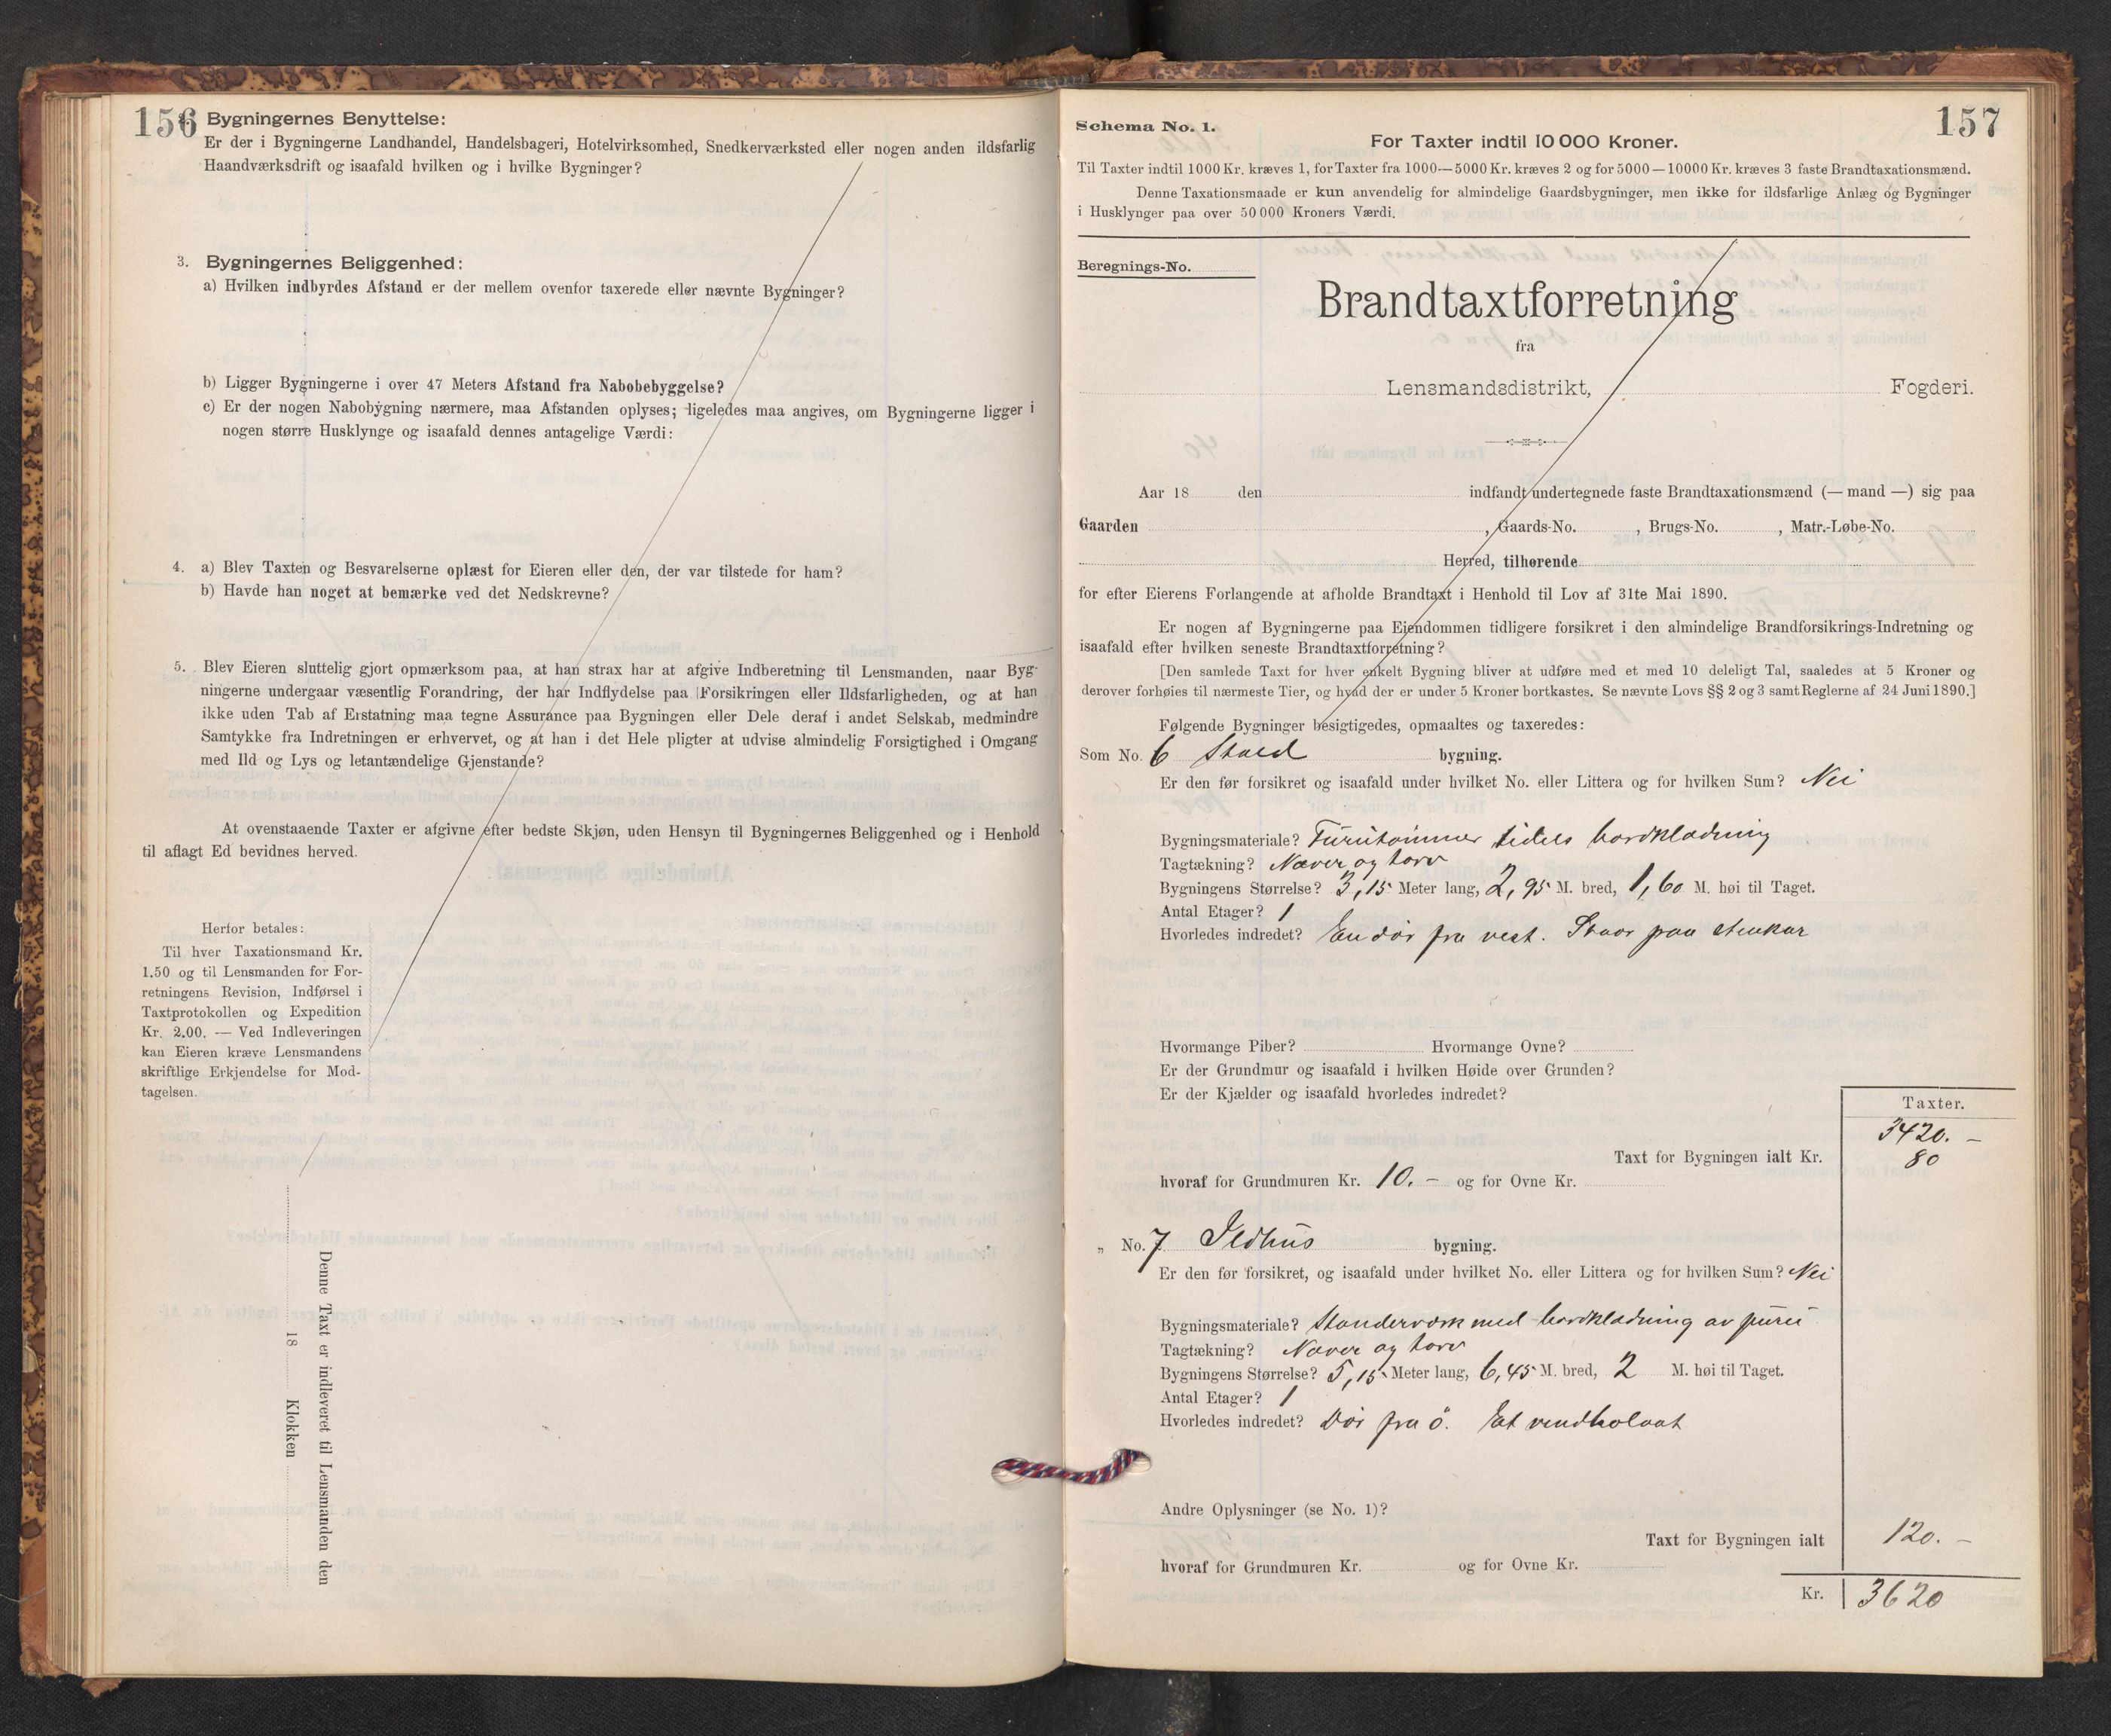 156
Bygningernes Benyttelse:
Er der i Bygningerne Landhandel, Handelsbageri, Hotelvirksomhed, Snedkerværksted eller nogen anden ildsfarlig
Haandværksdrift og isaafald hvilken og i hvilke Bygninger?
3. Bygningernes Beliggenhed:
a) Hvilken indbyrdes Afstand er der mellem ovenfor taxerede eller nævnte Bygninger?
b) Ligger Bygningerne i over 47 Meters Afstand fra Nabobebyggelse?
c) Er der nogen Nabobygning nærmere, maa Afstanden oplyses; ligeledes maa angives, om Bygningerne ligger i
nogen større Husklynge og isaafald dennes antagelige Værdi:
4. a) Blev Taxten og Besvarelserne oplæst for Eieren eller den, der var tilstede for ham?
b) Havde han noget at bemærke ved det Nedskrevne?
5. Blev Eieren sluttelig gjort opmærksom paa, at han strax har at afgive Indberetning til Lensmanden, naar Byg-
ningerne undergaar væsentlig Forandring, der har Indflydelse paa Forsikringen eller Ildsfarligheden, og at han
ikke uden Tab af Erstatning maa tegne Assurance paa Bygningen eller Dele deraf i andet Selskab, medmindre
Samtykke fra Indretningen er erhvervet, og at han i det Hele pligter at udvise almindelig Forsigtighed i Omgang
med Ild og Lys og letantændelige Gjenstande?
At ovenstaaende Taxter er afgivne efter bedste Skjøn, uden Hensyn til Bygningernes Beliggenhed og i Henhold
til aflagt Ed bevidnes herved.
Herfor betales:
Til hver Taxationsmand Kr.
1.50 og til Lensmanden for For-
retningens Revision, Indførsel i
Taxtprotokollen og Expedition
Kr. 2.00. — Ved Indleveringen
kan Eieren kræve Lensmandens
skriftlige Erkjendelse for Mod-
tagelsen.
Denne Taxt er indleveret til Lensmanden den
18 Klokken
157
Schema No. 1.
For Taxter indtil 10 000 Kroner.
Til Taxter indtil 1000 Kr. kræves 1, for Taxter fra 1000—5000 Kr. kræves 2 og for 5000—10000 Kr. kræves 3 faste Brandtaxationsmænd.
Denne Taxationsmaade er kun anvendelig for almindelige Gaardsbygninger, men ikke for ildsfarlige Anlæg og Bygninger
i Husklynger paa over 50 000 Kroners Værdi.
Beregnings-No.
Brandtaxtforretning
fra
Lensmandsdistrikt, Fogderi.
Aar 18 den indfandt undertegnede faste Brandtaxationsmænd (— mand —) sig paa
Gaarden , Gaards-No. , Brugs-No. , Matr.-Løbe-No.
Herred, tilhørende
for efter Eierens Forlangende at afholde Brandtaxt i Henhold til Lov af 31te Mai 1890.
Er nogen af Bygningerne paa Eiendommen tidligere forsikret i den almindelige Brandforsikrings-Indretning og
isaafald efter hvilken seneste Brandtaxtforretning?
[Den samlede Taxt for hver enkelt Bygning bliver at udføre med et med 10 deleligt Tal, saaledes at 5 Kroner og
derover forhøies til nærmeste Tier, og hvad der er under 5 Kroner bortkastes. Se nævnte Lovs §§ 2 og 3 samt Reglerne af 24 Juni 1890.]
Følgende Bygninger besigtigedes, opmaaltes og taxeredes:
Som No. 6 Stald bygning.
Er den før forsikret og isaafald under hvilket No. eller Littera og for hvilken Sum? Nei
Bygningsmateriale? Furutømmer tildels bordklædning
Tagtækning? Næver og torv
Bygningens Størrelse? 3,15 Meter lang, 2,95 M. bred, 1,60 M. høi til Taget.
Antal Etager? 1
Hvorledes indredet? En dør fra vest. Staar paa stenkar
Hvormange Piber? Hvormange Ovne?
Er der Grundmur og isaafald i hvilken Høide over Grunden?
Er der Kjælder og isaafald hvorledes indredet?
Taxter.
3420. —
Taxt for Bygningen ialt Kr. 80
hvoraf for Grundmuren Kr. 10. — og for Ovne Kr.
„ No. 7 Ildhus bygning.
Er den før forsikret, og isaafald under hvilket No. eller Littera og for hvilken Sum? Nei
Bygningsmateriale? Standerværk med bordklædning av furu
Tagtækning? Næver og torv
Bygningens Størrelse? 5,15 Meter lang, 6,45 M. bred, 2 M. høi til Taget.
Antal Etager? 1
Hvorledes indredet? Dør fra ö. Et
Andre Oplysninger (se No. 1)?
Taxt for Bygningen ialt 120. —
hvoraf for Grundmuren Kr. og for Ovne Kr.
Kr. 3620